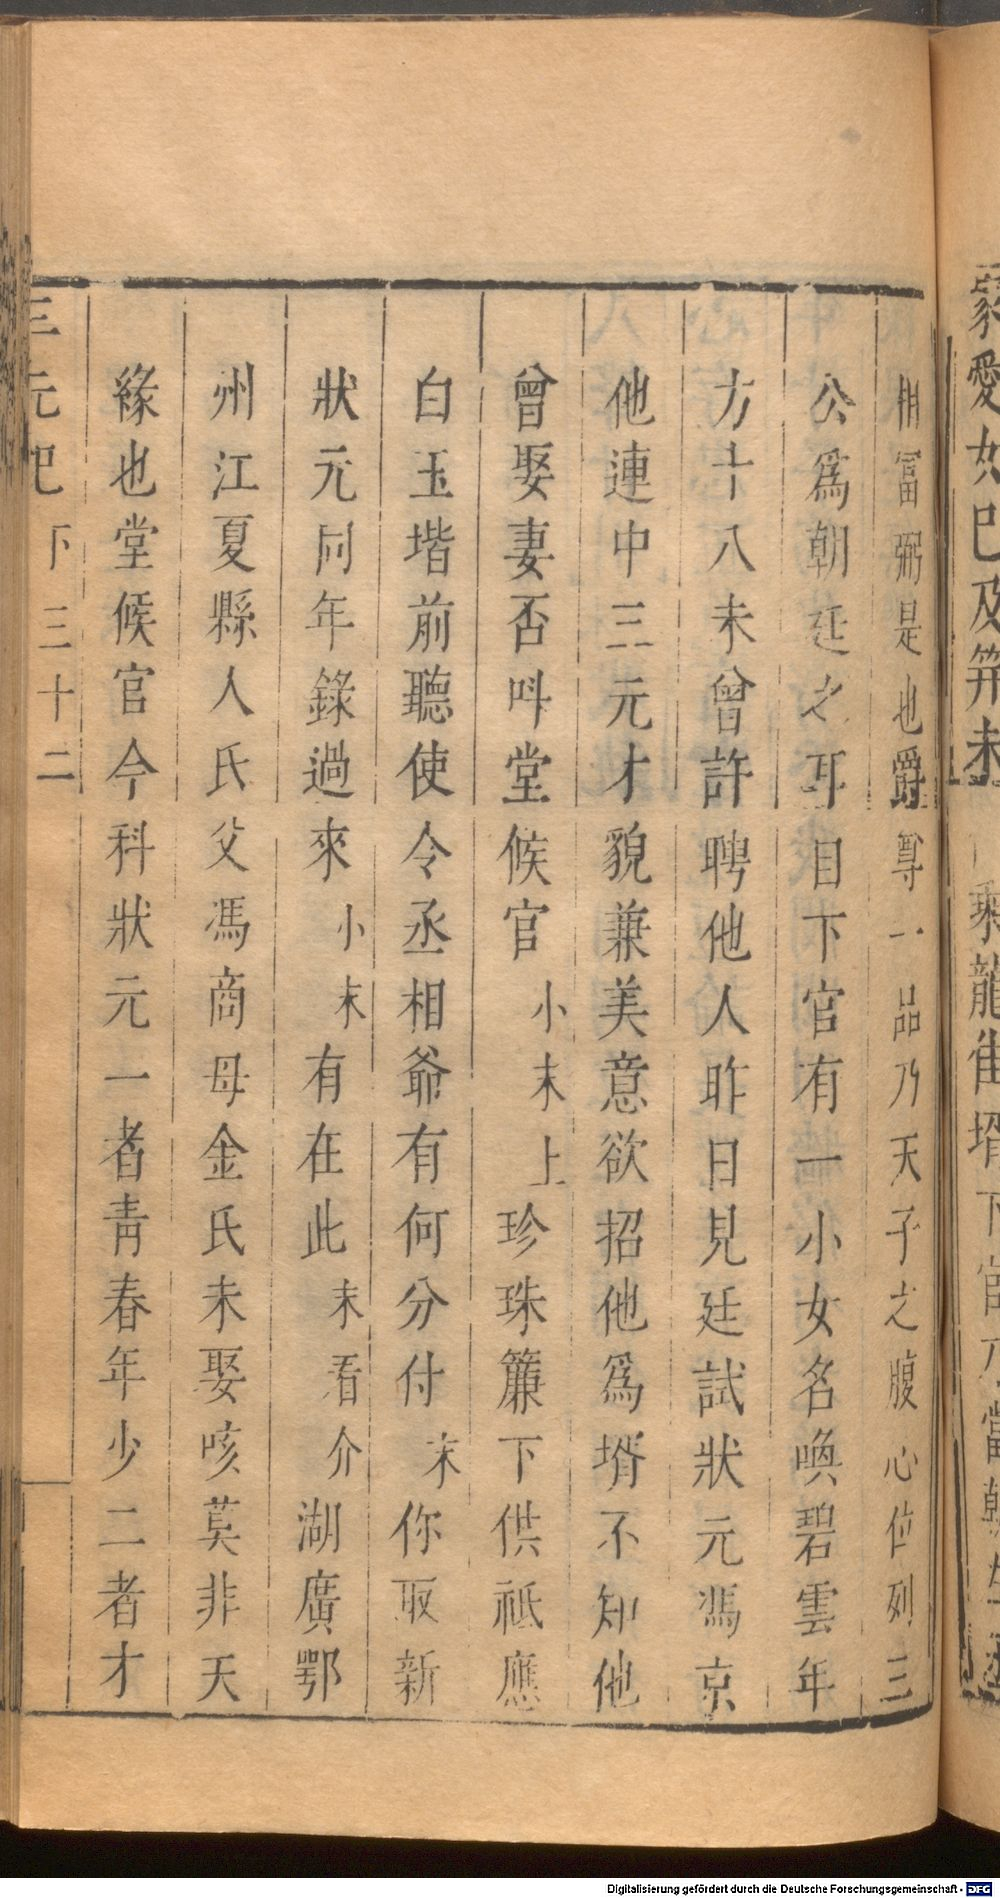 相富弼是也爵尊一品乃天子之腹心位列三
公爲朝廷之耳目下官有一小女名喚碧雲年
方十八未曾許聘他人昨日見廷試狀元馮京
他連中三元才貌兼美意欲招他爲壻不知他
曾娶妻否呌堂候官小末上珍珠簾下供祗應
白玉堦前聽使令丞相爺有何分付末你取新
狀元同年錄過來小末有在此末看介湖廣鄂
州江夏縣人氏父馮商母金氏未娶咳莫非天
緣也堂候官今科狀元一者靑春年少二者才
三元記 下 三十二
愛女已及笄未
乘龍佳壻下官
Digitalisierung gefördert durch die Deutsche Forschungsgemeinschaft - DFG